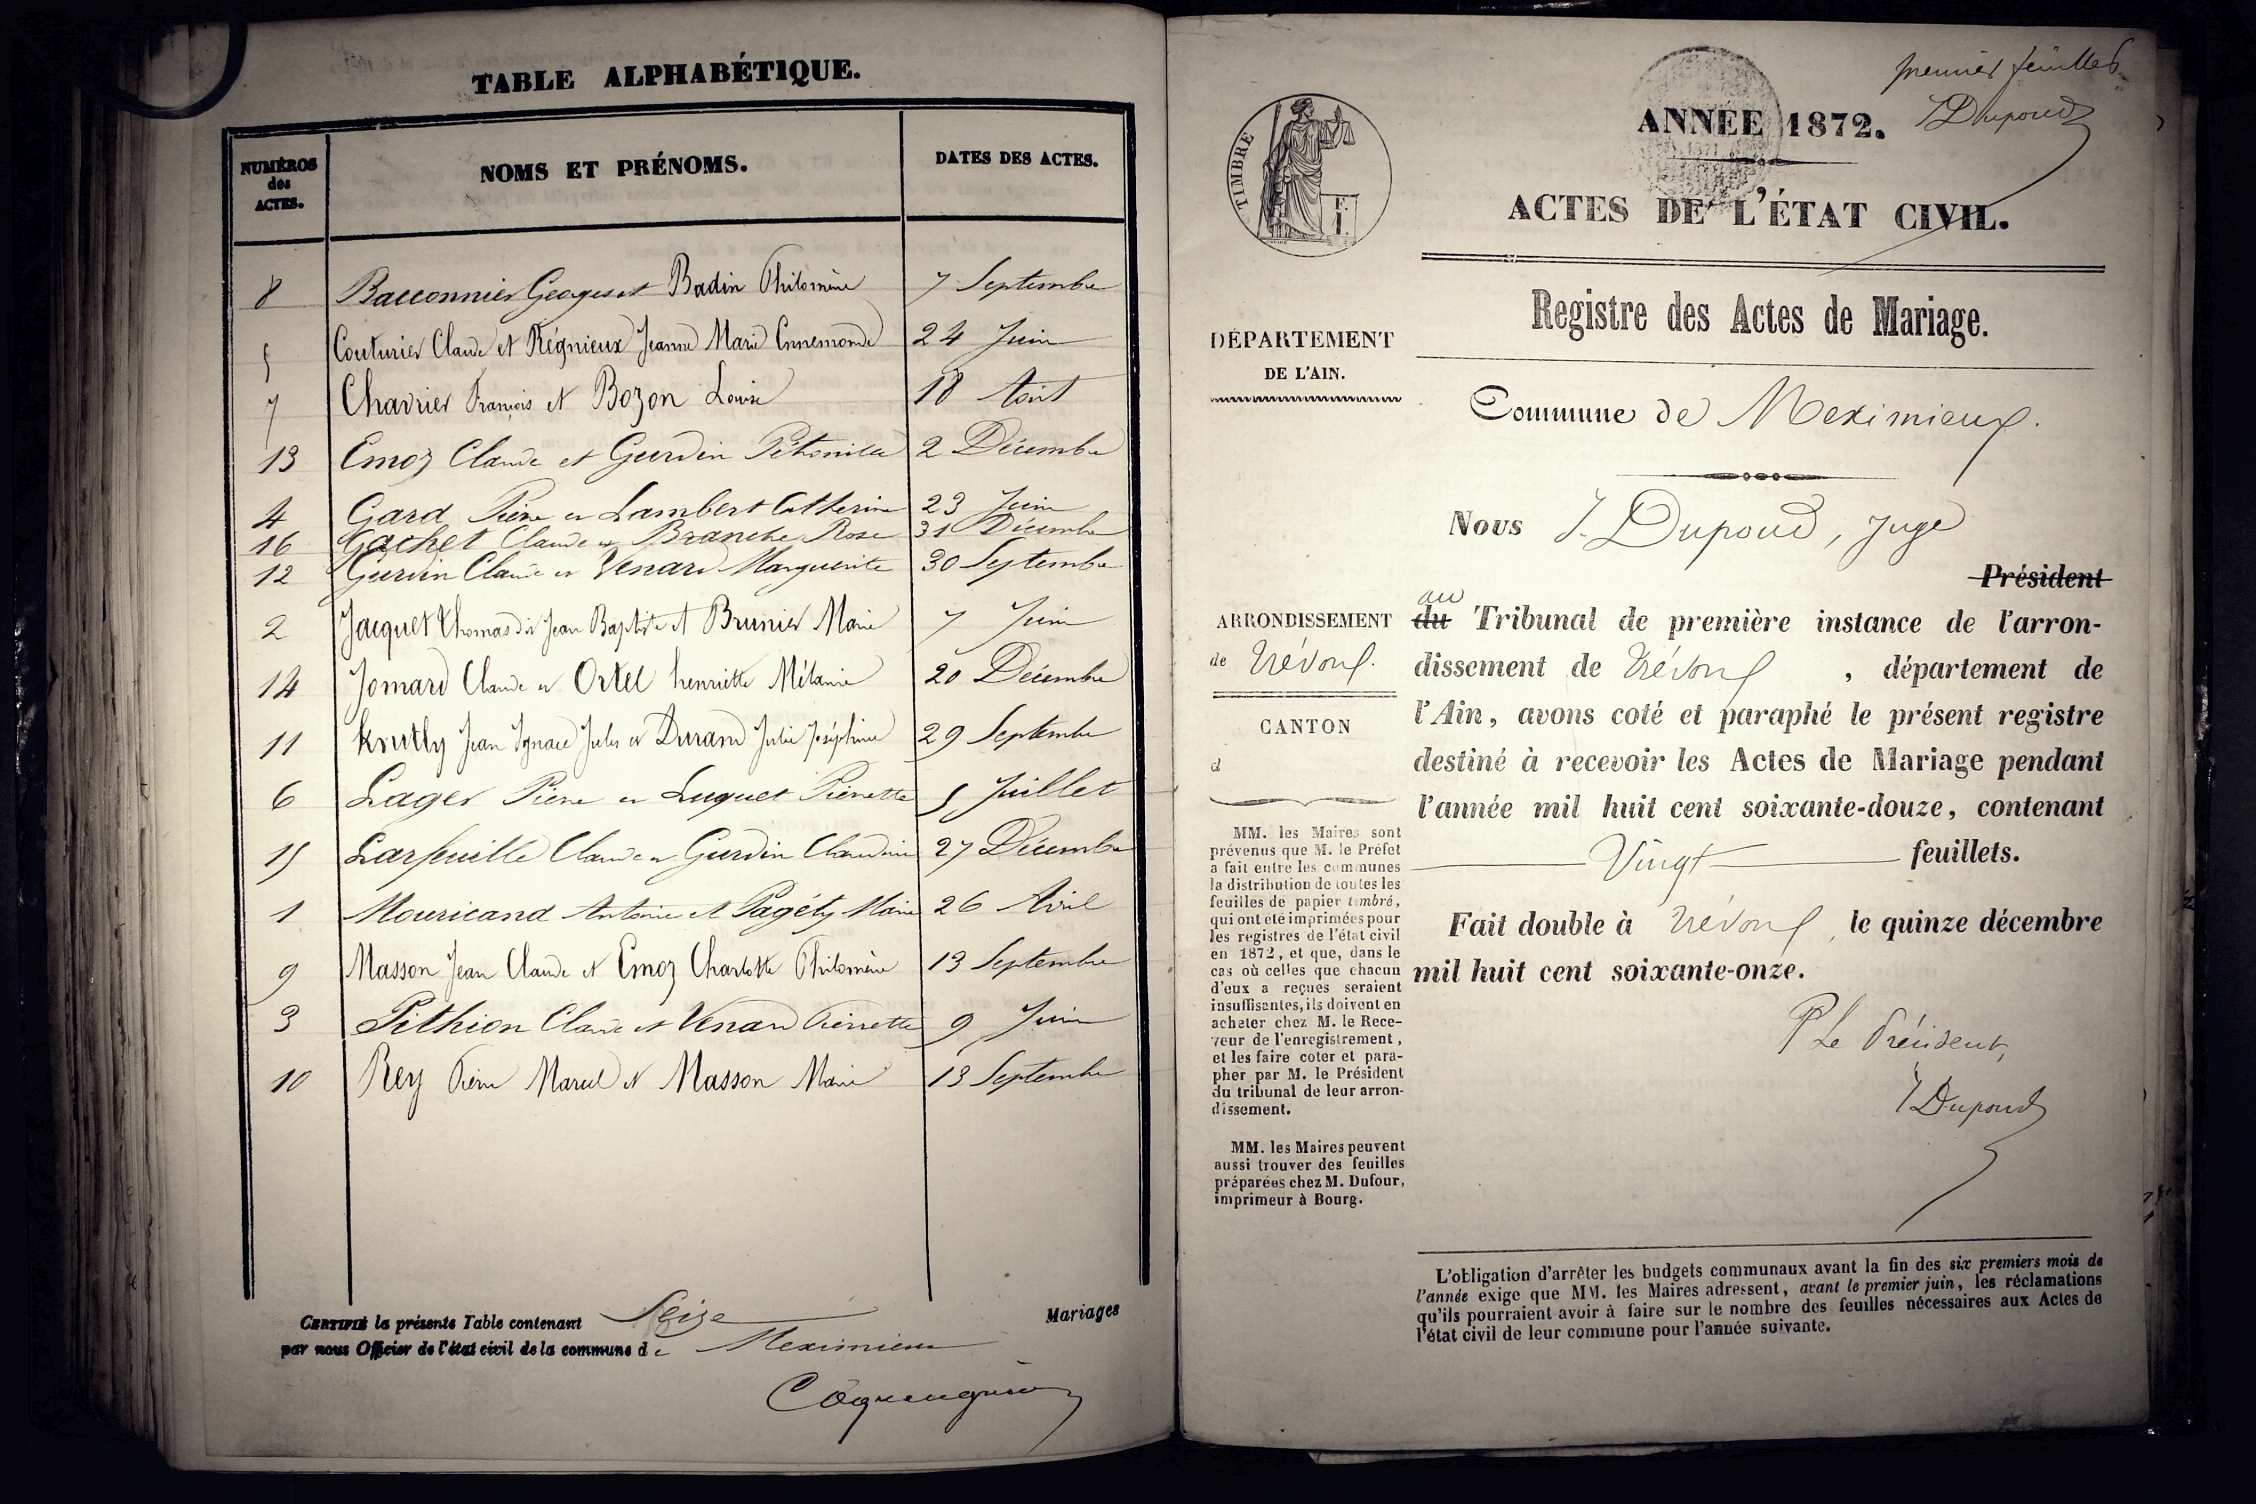 TABLE ALPHABÉTIQUE.
NUMÉROS des ACTES.
NOMS ET PRÉNOMS.
DATES DES ACTES.
8 Bacconnier Georges et Badin Philomène 7 Septembre
5 Couturier Claude et Régnieux Jeanne Marie Ennemonde 24 Juin
7 Chavrier François et Bozon Louise 18 Août
13 Emoz Claude et Gurdin Pétronille 2 Décembre
4 Gard Pierre et Lambert Catherine 23 Juin
16 Gachet Claude et Branche Rose 31 Décembre
12 Gurdin Claude et Venard Marguerite 30 Septembre
2 Jacquet Thomas dit Jean Baptiste et Brunier Marie 7 Juin
14 Jomard Claude et Ortel henriette Mélanie 20 Décembre
11 Knutly Jean Ignace Jules et Durand Julie Joséphine 29 Septembre
6 Lager Pierre et Luquet Pierrette 5 Juillet
15 Larfeuille Claude et Gurdin Claudine 27 Décembre
1 Mouricand Antoine et Pagéty Marie 26 Avril
9 Masson Jean Claude et Emoz Charlotte Philomène 13 Septembre
3 Pithion Claude et Venard Pierrette 9 Juin
10 Rey Pierre Marcel et Masson Marie 13 Septembre
CERTIFIÉ la présente Table contenant Seize Mariages
par nous Officier de l'état civil de la commune de Meximieux
premier feuillet
J Dupoud
TIMBRE
ANNÉE 1872.
ACTES DE L'ÉTAT CIVIL.
Registre des Actes de Mariage.
DÉPARTEMENT
DE L'AIN.
Commune de Meximieux.
Nous J. Dupoud, juge
Président
au
ARRONDISSEMENT
de Trévoux.
CANTON
d
du Tribunal de première instance de l'arron-
dissement de Trévoux, département de
l'Ain, avons coté et paraphé le présent registre
destiné à recevoir les Actes de Mariage pendant
l'année mil huit cent soixante-douze, contenant
Vingt feuillets.
Fait double à Trévoux, le quinze décembre
mil huit cent soixante-onze.
P Le Président,
J Dupoud
MM. les Maires sont
prévenus que M. le Préfet
a fait entre les communes
la distribution de toutes les
feuilles de papier timbré,
qui ont été imprimées pour
les registres de l'état civil
en 1872, et que, dans le
cas où celles que chacun
d'eux a reçues seraient
insuffisantes, ils doivent en
acheter chez M. le Rece-
veur de l'enregistrement,
et les faire coter et para-
pher par M. le Président
du tribunal de leur arron-
dissement.
MM. les Maires peuvent
aussi trouver des feuilles
préparées chez M. Dufour,
imprimeur à Bourg.
L'obligation d'arrêter les budgets communaux avant la fin des six premiers mois de
l'année exige que MM. les Maires adressent, avant le premier juin, les réclamations
qu'ils pourraient avoir à faire sur le nombre des feuilles nécessaires aux Actes de
l'état civil de leur commune pour l'année suivante.